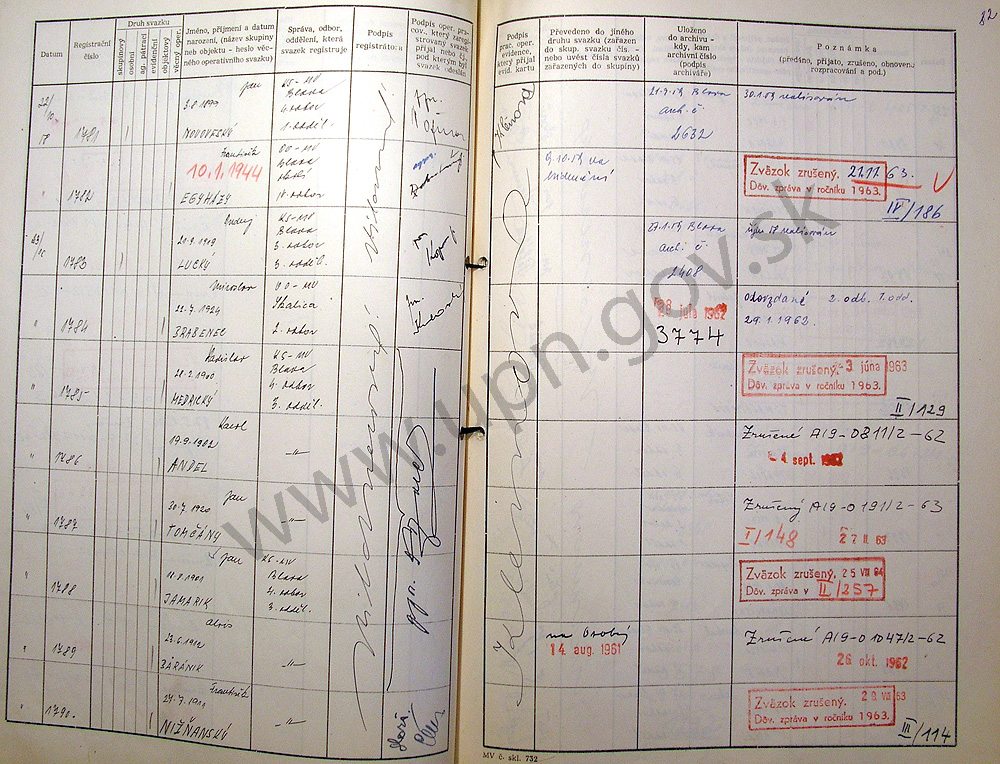 82
Datum
Registrační číslo
Druh svazku
skupinový
osobní
ag. pátrací
evidenční
objektový
věcný oper.
Jméno, příjmení a datum
narození, (název skupiny
neb objektu - heslo věc-
ného operativního svazku)
Správa, odbor,
oddělení, která
svazek registruje
Podpis
registrátora
Podpis oper. pra-
cov. který zaregi-
stroval svazek
přijal nebo ej.
pod kterým byl
svazek odeslán
Podpis
prac. oper.
evidence,
který přijal
evid. kartu
Převedeno do jiného
druhu svazku (zařazen
do skup. svazku čís. -
nebo uvést čísla svazků
zařazených do skupiny)
Uloženo
do archivu -
kdy, kam
archivní číslo
(podpis
archiváře)
Poznámka
(předáno, přijato, zrušeno, obnoveno,
rozpracování a pod.)
22/
10.
1781
Jan
3.8.1899
NOVOVESKÝ
KS-MV
Blava
4. odbor
1. odděl.
21.9.59 Blava
arch. č.
2632
30.1.59 realisován
" 1782
František
10.1.1944
EGYHÁZY
OO-MV
Blava
9.10.59 na
evidenční
Zväzok zrušený. 21.11.63.
Dôv. zpráva v ročníku 1963.
IV/186
23/
10
1783
Ondrej
21.9.1909
LUCKÝ
KS-MV
Blava
3. odbor
3. odděl.
arch. č.
2408
" 1784
Miroslav
21.7.1924
BRABENEC
OO-MV
Skalica
2. odbor
28 júla 1962
3774
odovzdané 2. odb. 1. odd.
29.1.1962.
" 1785
Ladislav
28.2.1900
MEDRICKÝ
KS-MV
Blava
4. odbor
3. odděl.
Zväzok zrušený. -3 júna 1963
Dôv. zpráva v ročníku 1963.
II/129
" 1786
Karol
19.9.1902
ANDEL
-"-
Zrušené A19-0811/2-62
-4. sept. 1962
" 1787
Jan
30.7.1920
TOMČÁNY
-"-
Zrušený A19-0191/2-63
I/148
27 II. 63
" 1788
Jan
11.8.1901
JAMARIK
KS-MV
Blava
4. odbor
3. odděl.
Zväzok zrušený. 25 VII 64
Dôv. zpráva v II/257
" 1789
Alois
23.6.1912
BARÁNIK
-"-
na Osobný
14. aug. 1961
Zrušené A19-01047/2-62
26. okt. 1962
" 1790.
František
27.7.1911
NIŽŇANSKÝ
-"-
Zväzok zrušený. 29. VIII 63
Dôv. zpráva v ročníku 1963.
III/114
MV č. skl. 732
www.upn.gov.sk